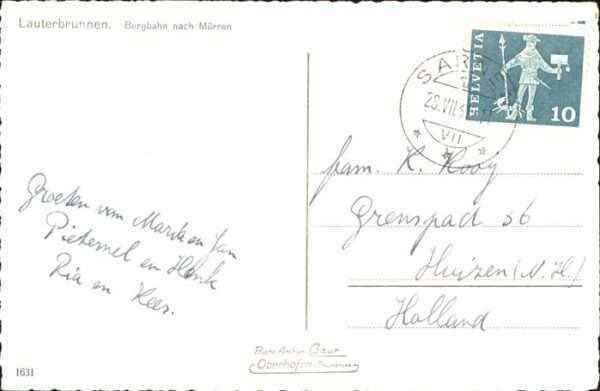 Lauterbrunnen. Bergbahn nach Mürren
HELVETIA
10
SAR
28.VII.
VII
Groeten van Marik en Jan
Pieternel en Henk
Ria en Kees.
fam. K. Kooy
Grenspad 56
Huizen (N.H.)
Holland
Photo Arthur Baur
Oberhofen-Thunersee
1631